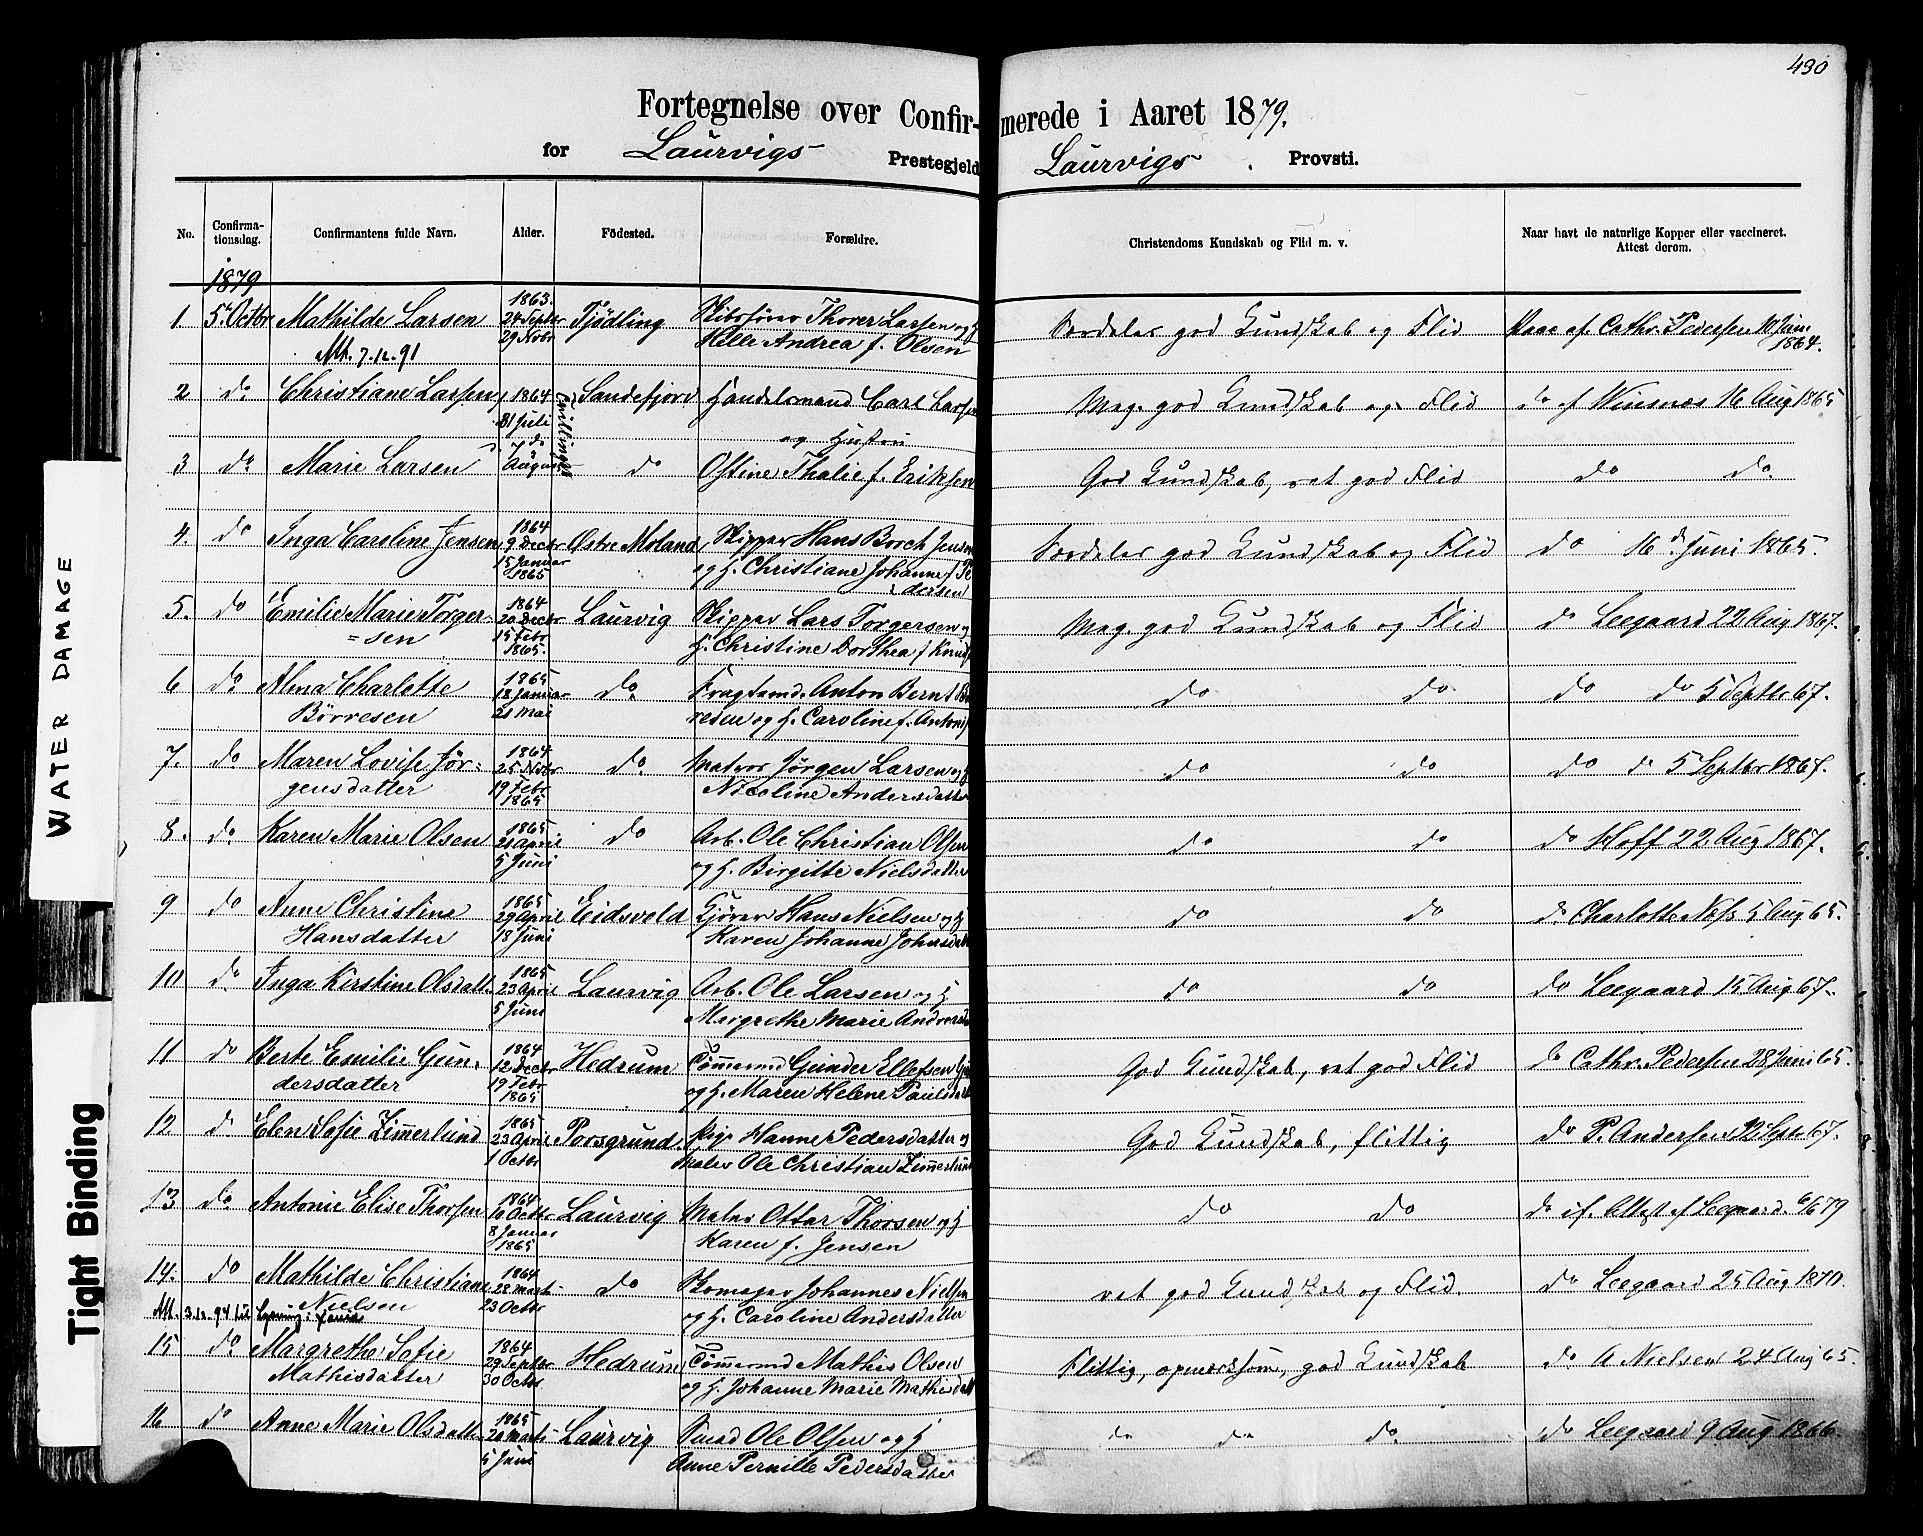 430
Fortegnelse over Confirmerede i Aaret 1879.
for Laurvigs Prestegjeld Laurvigs Provsti.
No. Confirmationsdag. Confirmantens fulde Navn. Alder. Fødested. Forældre. Christendoms Kundskab og Flid m. v. Naar havt de naturlige Kopper eller vaccineret. Attest derom.
1879
1863.
1 5t Octbr Mathilde Larsen 24 Septbr Tjödling Skibsfører Thorer Larsen og H. Særdeles god Kundskab og Flid Vacc af Cathr. Pedersen 10 Juni
29 Novbr Helle Andrea f. Olsen 1864.
Att. 7.12.91
2 do Christiane Larsen 1864 Sandefjord Handelsmand Carl Larsen Meg. god Kundskab og Flid do af Winsnes 16 Aug 1865
31 Juli tvillinger og Hustru
3 do Marie Larsen 7 August do Ostine Thalie f. Eriksen God Kundskab, ret god Flid do do
do
4. do Inga Caroline Jensen 1864 9 Decbr Østre Moland Skipper Hans Borch Jensen Særdeles god Kundskab og Flid do 16 d. Juni 1865.
15 Januar 1865 og H. Christiane Johanne f. Pedersen
5. do Emilie Marie Torger= 1864 20 Decbr Laurvig Skipper Lars Torgersen og Meg. god Kundskab og Flid do Leegaard 22 Aug 1867.
=sen 15 Febr 1865. H. Christine Dorthea f
6 do Alma Charlotte 1865 18 Januar do Fragtmd. Anton Bernt Bør do do do do 5 Septbr 67.
Børresen 21 Mai resen og H. Caroline f. Antoni
7. do Maren Lovise Jør= 1864 25 Novbr do Matros Jørgen Larsen og H do do do do 5 Septbr 1867.
gensdatter 19 Febr 1865 Nicoline Andersdatter
8. do Karen Marie Olsen 1865 21 April do Arb. Ole Christian Olsen do do do Hoff 22 Aug 1867.
5 Juni og H. Birgitte Nielsdatter
9 do Anne Christine 1865 29 April Eidsvold Kjører Hans Nielsen og H do do do Charlotte Næss 5 Aug 65.
Hansdatter 18 Juni Karen Johanne Johnsdat
10 do Inga Kirstine Olsdatt. 1865 23 April Laurvig Arb. Ole Larsen og H do do do Leegaard 15 Aug 67.
5 Juni Margrethe Marie Andersd
11 do Berte Emilie Gun= 1864 12 Decbr Hedrum Tømmermd Gunder Ellefsen God Kundskab, ret god Flid do Cathr. Pedersen 28 Juni 65.
dersdatter 19 Febr 1865 og H. Maren Helene Paulsdatt
12 do Elen Sofie Zimmerlund 1865 23 April Porsgrund. Pige Hanne Pedersdatter og God Kundskab, flittig do P. Andersen 12 Septr 67.
1 Octbr Maler Ole Christian Zimmerlund
13 do Antonie Elise Thorsen 1864 10 Octbr Laurvig Maler Ottar Thorsen og H do do do if. Attest af Leegaard. 6/6 79
8 Januar 1865 Karen f. Jensen
14. do Mathilde Christiane 1864 28 Marts do Skomager Johannes Nielsen ret god Kundskab og Flid. do Leegaard 25 Aug 1870.
Nielsen 23 Octbr og H. Caroline Andersdatter
Att. 3.12.94 til
15 do Margrethe Sofie 1864 29 Septbr Hedrum Tømmermd Mathis Olsen Flittig, opmærksom, god Kundskab do A Nielsen 24 Aug 65.
Mathisdatter 30 Octbr og H. Johanne Marie Mathisdatt
16 do Anne Marie Olsdatter 1865 20 Marts Laurvig Smed Ole Olsen og H do do do do Leegaard 9 Aug 1866.
5 Juni Anne Pernille Pedersdatter
WATER DAMAGE
Tight Binding